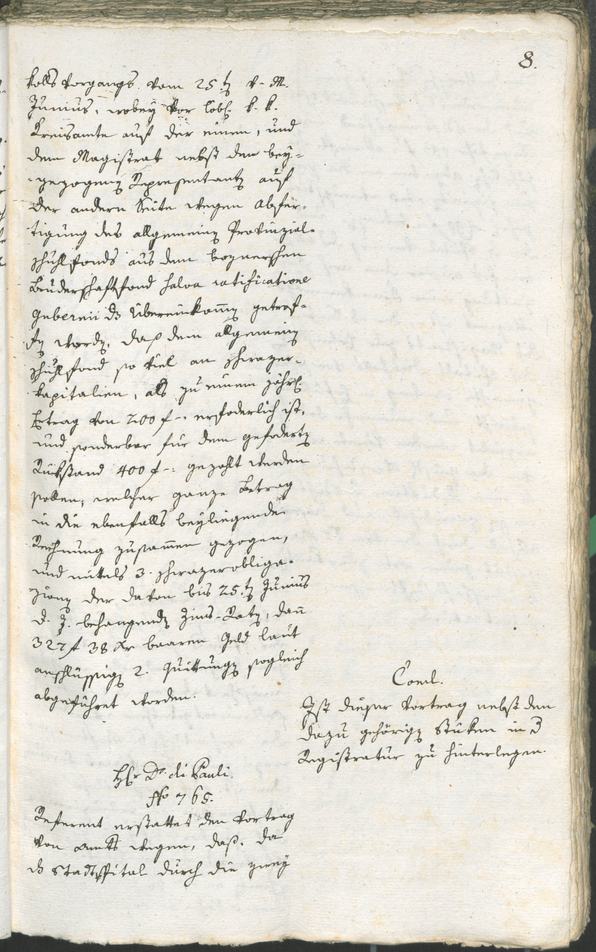 8.
kolls Vorgangs vom 25.t v. M.
Junius, wobey vor löbl. k. k.
Kreisamte auf der einen, und
dem Magistrat nebst den bey-
gezogenen Representanten auf
der andern Seite wegen Abfer-
tigung des allgemeinen Provinzial-
schulfonds aus dem boznerschen
Bruderschaftfond salva ratificatione
Gubernii das Übereinkommen getrof-
fen worden, daß dem allgemeinen
schulfond so viel an schwazer-
kapitalien, als zu einem jährl.
Ertrag von 200 f -. erforderlich ist,
und sonderbar für dem geforderten
Rükstand 400 f -: gezahlt werden
sollen, welcher ganze Betrag
in die ebenfalls beyliegende
Rechnung zusamen gezogen,
und mittels 3. schwazerobliga-
zionen der davon bis 25.t Junius
d. J. behangenden Zins-Raten, dan
327 f 38 Xr baaren Geld laut
anschlüssigen 2. Quittungen sogleich
abgeführet worden.
Conl.
Ist dieser Vortrag nebst den
dazu gehörigen Stüken in d
Registratur zu hinterlegen.
Hr Dr. di Pauli.
No 765.
Referent erstattet den Vortrag
von Amts wegen, daß, da
das Stadtspital durch die zwey